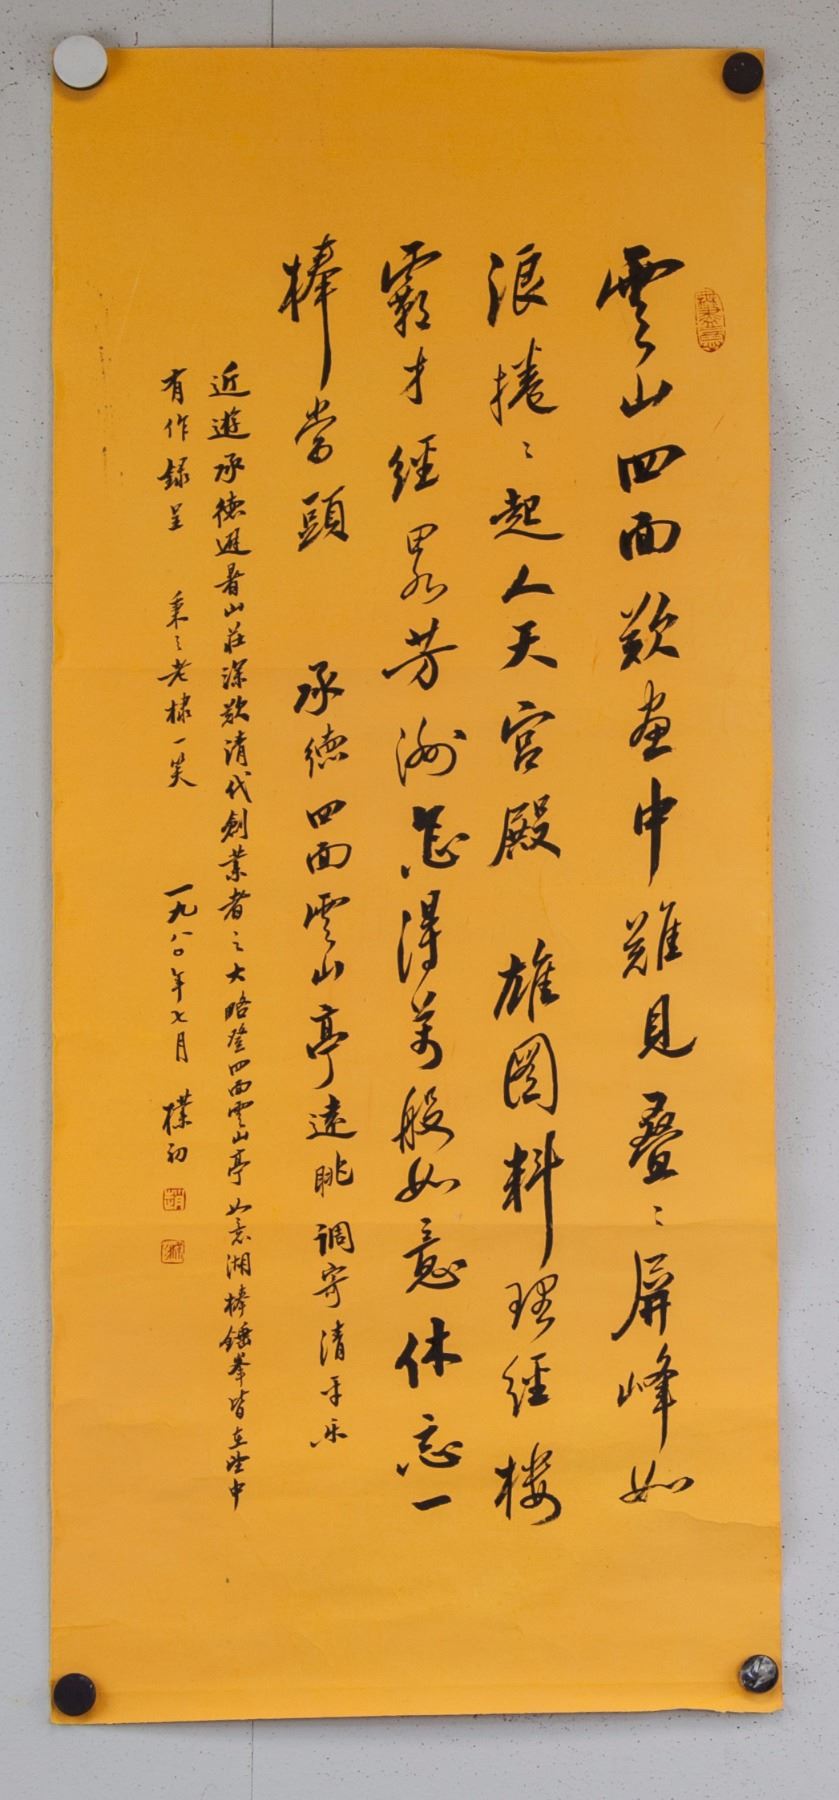 雲山四面歎畫中難見疊〻屏峰如
浪捲〻起人天宮殿　雄图料理經楼
霸才經畧芳洲怎得萬般如意休忘一
棒當頭　承德四面雲山亭遠眺調寄清平乐
近遊承德避暑山莊深歎清代創業者之大略登四面雲山亭如意湖棒錘峯皆在望中
有作録呈　秉〻老棣一笑　一九八〇年七月　樸初
趙